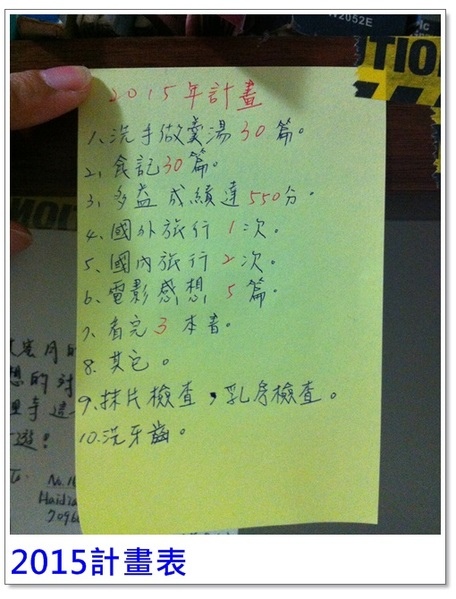 2052E
TION
2015年計畫
1、洗手做羹湯30篇。
2、食記30篇。
3、多益成績達550分。
4、國外旅行1次。
5、國內旅行2次。
6、電影感想5篇。
7、看完3本書。
8、其它。
9、抹片檢查，乳房檢查。
10、洗牙齒。
月的
想的
To:
No.
2015計畫表